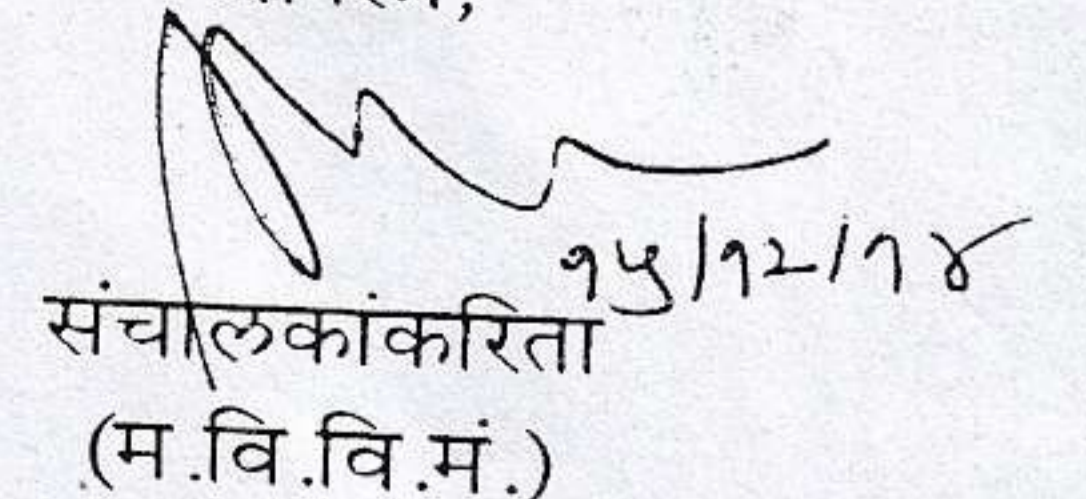 १५/१२/१४
संचालकांकरिता
(म.वि.वि.मं.)